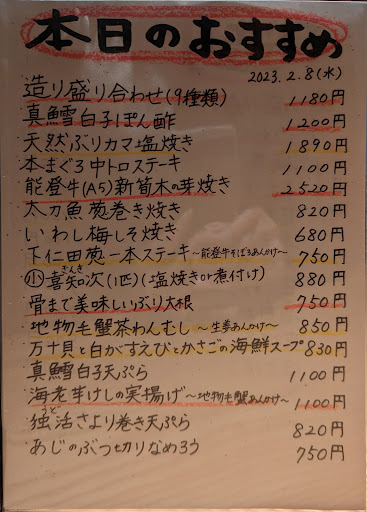 本日のおすすめ
2023.2.8(水)
造り盛り合わせ(9種類) 1180円
真鱈白子ぽん酢 1200円
天然ぶりカマ塩焼き 1890円
本まぐろ中トロステーキ 1100円
能登牛(A5)新筍木の芽焼き 2520円
太刀魚葱巻き焼き 820円
いわし梅しそ焼き 680円
下仁田葱一本ステーキ〜能登牛そぼろあんかけ〜 750円
きんき
小喜知次(1匹)(塩焼きor煮付け) 880円
骨まで美味しいぶり大根 750円
地物毛蟹茶わんむし〜生姜あんかけ〜 850円
万十貝と白かすえびとかさごの海鮮スープ 830円
真鱈白子天ぷら 1100円
海老芋けしの実揚げ〜地物毛蟹あんかけ〜 1100円
うど
独活さより巻き天ぷら 820円
あじのぶつ切りなめろう 750円